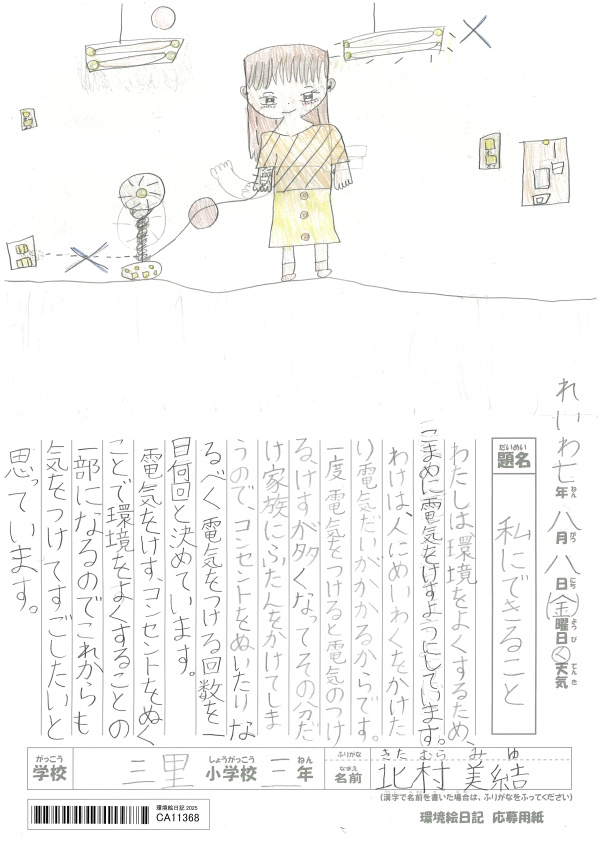 れいわ七年八月八日(金)曜日く天気
ねん がつ にち ようび てんき
だいめい
題名
私にできること
わたしは環境をよくするため、
こまめに電気をけすようにしています。
わけは、人にめいわくをかけた
り電気だいがかかるからです。
一度電気をつけると電気のつけ
るけすが多くなってその分だ
け家族にふたんをかけてしま
うので、コンセントをぬいたりな
るべく電気をつける回数を一
日何回と決めています。
電気をけす、コンセントをぬく
ことで環境をよくすることの
一部になるのでこれからも
気をつけてすごしたいと
思っています。
がっこう
学校
三里
しょうがっこう
小学校
三
ねん
年
ふりがな
きたむら みゆ
なまえ
名前
北村美結
(漢字で名前を書いた場合は、ふりがなをふってください)
環境絵日記 2025
CA11368
環境絵日記 応募用紙